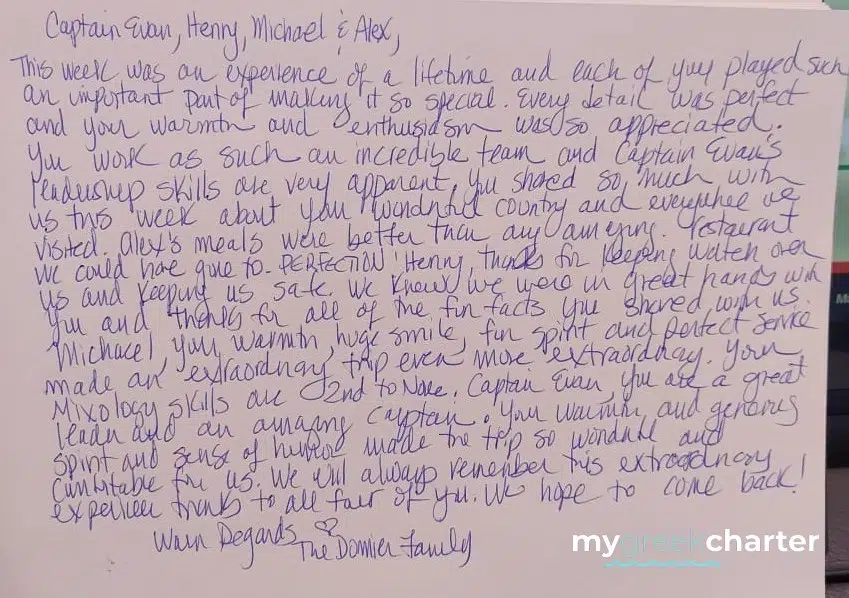 Captain Evan, Henry, Michael & Alex,
This week was an experience of a lifetime and each of you played such
an important part of making it so special. Every detail was perfect
and your warmth and enthusiasm was so appreciated.
You work as such an incredible team and Captain Evan's
leadership skills are very apparent. You shared so much with
us this week about your wonderful country and everywhere we
visited. Alex's meals were better than any amazing restaurant
we could have gone to. PERFECTION! Henry, thanks for keeping watch over
us and keeping us safe. We knew we were in great hands with
you and thanks for all of the fun facts you shared with us.
Michael, your warmth, huge smile, fun spirit and perfect service
made an extraordinary trip even more extraordinary. Your
Mixology skills are 2nd to None. Captain Evan, you are a great
leader and an amazing captain. Your warmth and generous
spirit and sense of humor made the trip so wonderful and
comfortable for us. We will always remember this extraordinary
experience thanks to all four of you. We hope to come back!
Warm Regards
The Domier Family
mygreekcharter